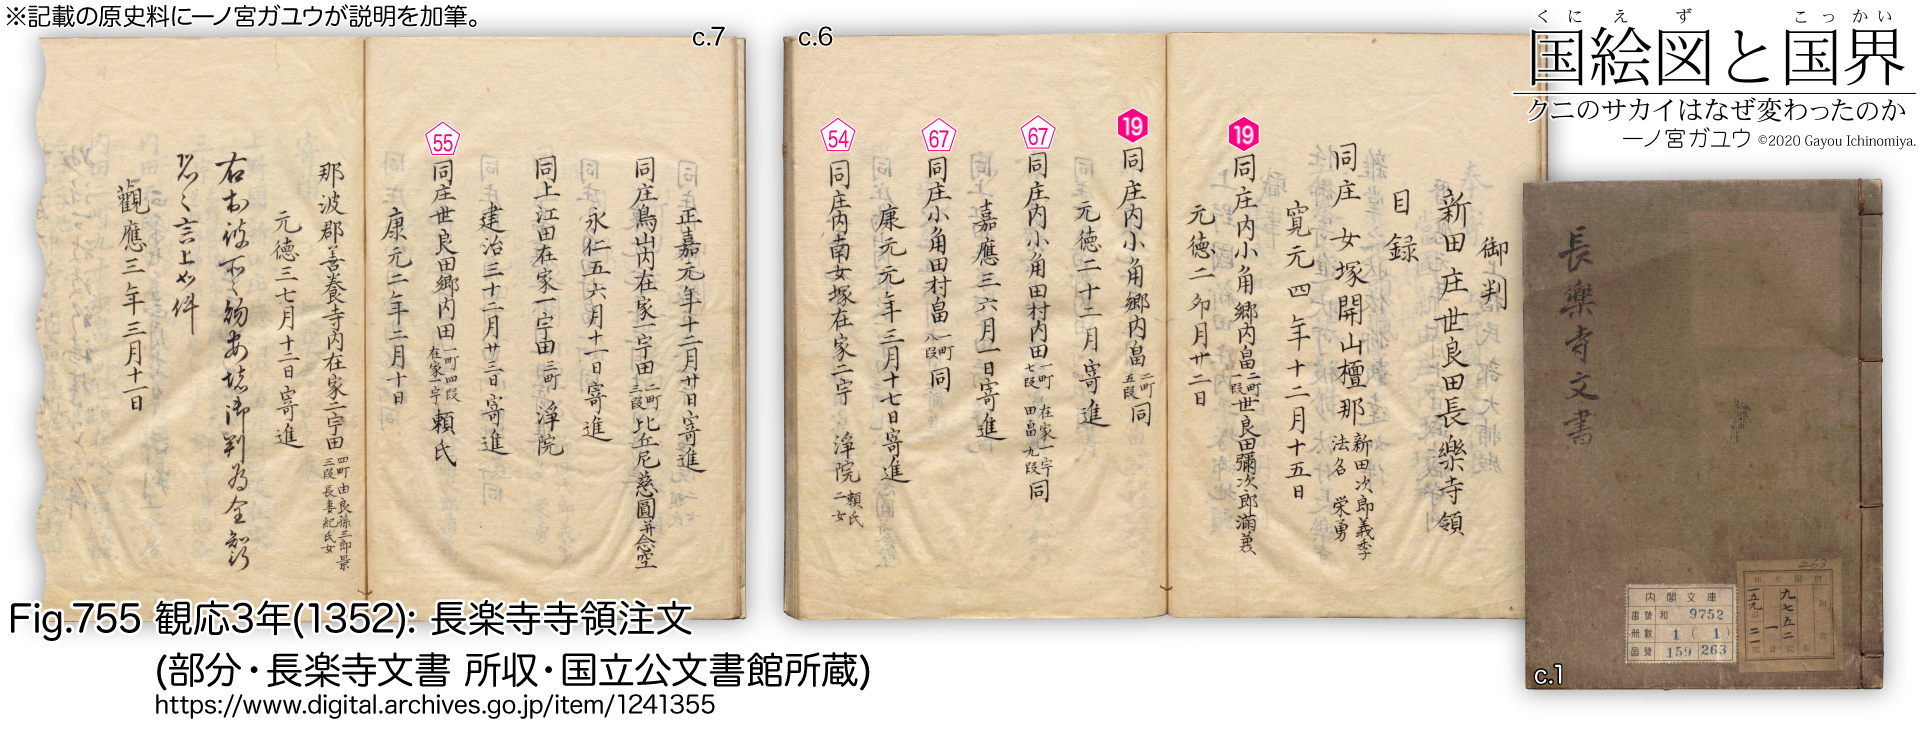 ※記載の原史料に一ノ宮ガユウが説明を加筆。
くにえず こっかい
国絵図と国界
クニのサカイはなぜ変わったのか
一ノ宮ガユウ ©2020 Gayou Ichinomiya.
c.6
御判
新田庄世良田長樂寺領
目録
同庄女塚開山檀那 新田次郎義季 法名 栄勇
寛元四年十二月十五日
19
同庄内小角郷内畠 二町一段 世良田彌次郎満義
元徳二 卯月廿二日
19
同庄内小角郷内畠 二町五段 同
元徳二十二月寄進
67
同庄内小角田村内田 一町七段 在家一宇 田畠九段 同
嘉應三六月一日寄進
67
同庄小角田村畠 一町八段 同
康元元年三月十七日寄進
54
同庄内南女塚在家二宇 淨院 頼氏二女
c.7
正嘉元年十二月廿日寄進
同庄鳥山内在家一宇田 二町三段 比丘尼慈圓并念空
永仁五六月十一日寄進
同上江田在家一宇田 三町 淨院
建治三十二月廿三日寄進
55
同庄世良田郷内田 一町四段 在家一宇 頼氏
康元二年二月十日
那波郡善養寺内在家二宇田 四町三段 由良孫三郎景長妻紀氏女
元徳三七月十二日寄進
右
言上如件
觀應三年三月十一日
c.1
長樂寺文書
内閣文庫
番號 和 9752
冊數 1 (1)
函號 159 263
263
九七五二
一
Fig.755 観応3年(1352): 長楽寺寺領注文
(部分・長楽寺文書 所収・国立公文書館所蔵)
https://www.digital.archives.go.jp/item/1241355